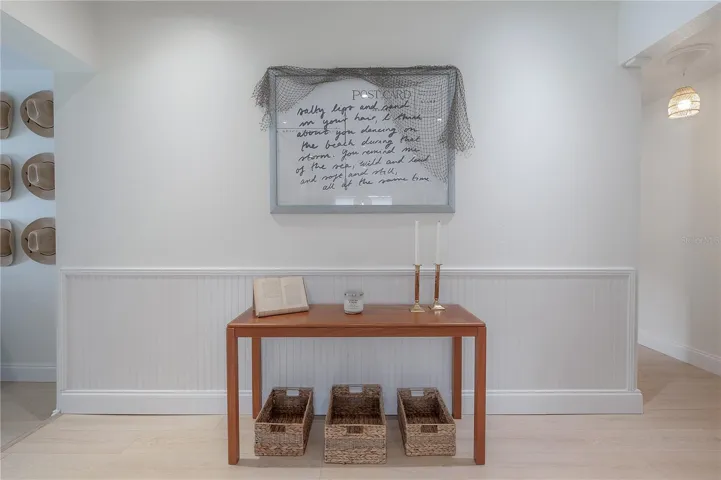 POST CARD
salty lips and sand
in your hair, I think
about you dancing on
the beach during that
storm. you remind me
of the sea, wild and loud
and soft and still,
all at the same time